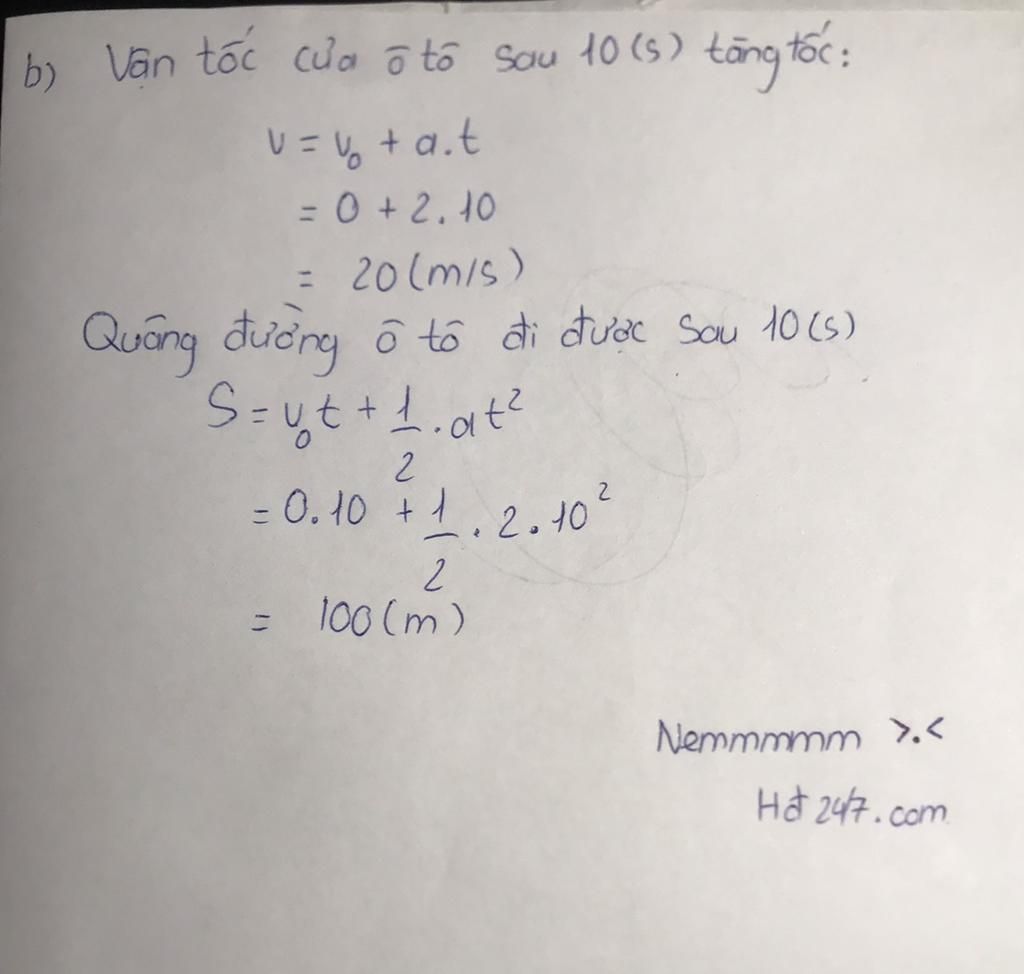 b) Vận tốc của ô tô sau 10 (s) tăng tốc:
v = v₀ + a.t
= 0 + 2.10
= 20 (m/s)
Quãng đường ô tô đi được sau 10 (s)
S = v₀t + 1/2 . at²
= 0.10 + 1/2 . 2.10²
= 100 (m)
Nemmmmm >.<
Hđ 247.com